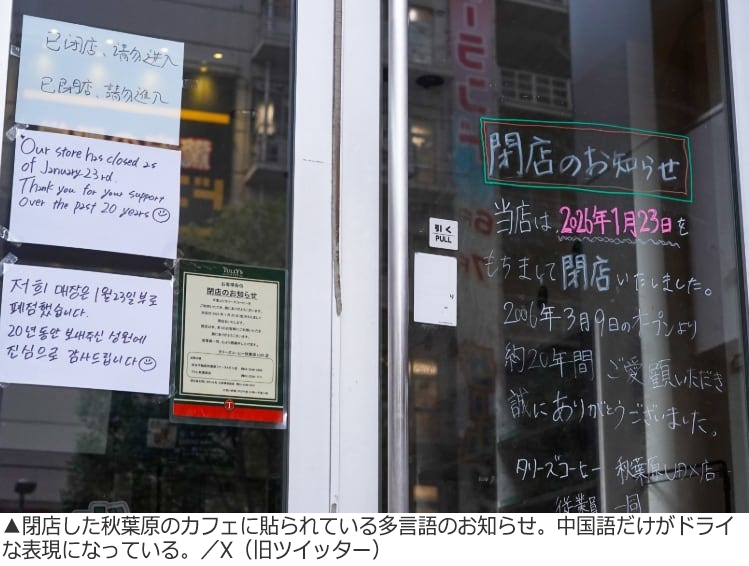 已闭店、请勿进入
已閉店、請勿進入
Our store has closed as
of January 23rd.
Thank you for your support
over the past 20 years
저희 매장은 1월 23일부로
폐점했습니다.
20년동안 보내주신 성원에
진심으로 감사드립니다
TULLY'S
お客様各位
閉店のお知らせ
T
引く
PULL
閉店のお知らせ
当店は、2026年1月23日を
もちまして閉店いたしました。
2006年3月9日のオープンより
約20年間 ご愛顧いただき
誠にありがとうございました。
タリーズコーヒー 秋葉原UDX店
従業員 一同
▲閉店した秋葉原のカフェに貼られている多言語のお知らせ。中国語だけがドライ
な表現になっている。／X（旧ツイッター）